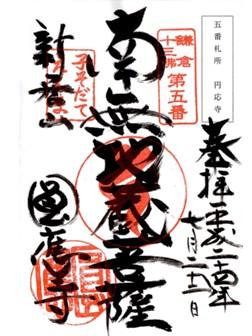 五番札所 円応寺
奉拝 平成二十四年
七月二十二日
鎌倉
十三佛
第五番
南無地蔵菩薩
子そだて
新居山
圓應寺